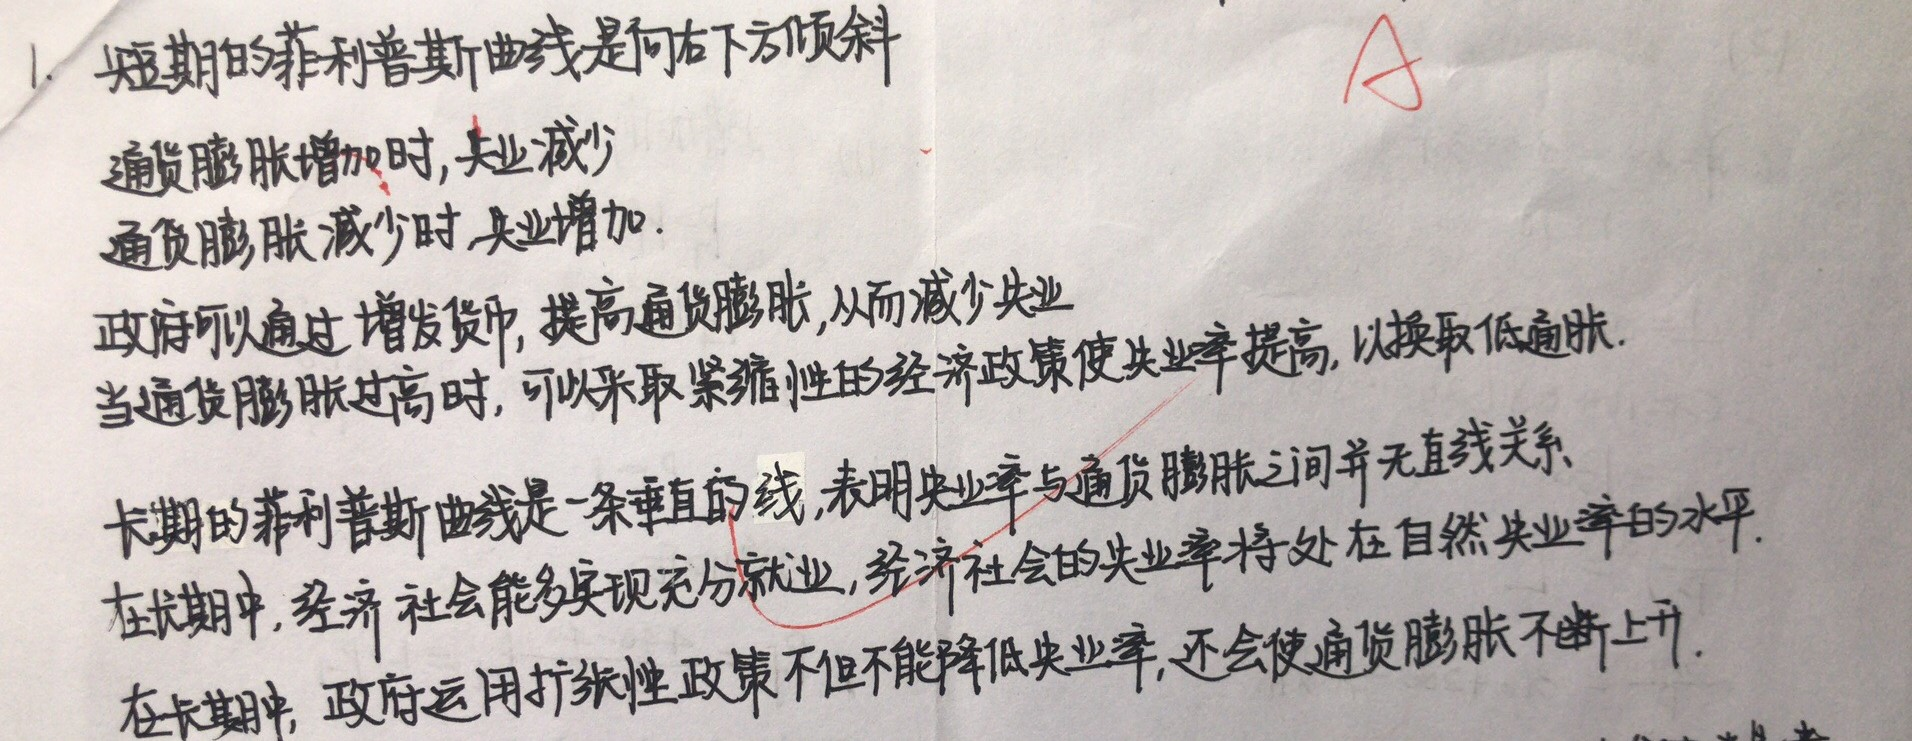 1. 短期的菲利普斯曲线是向右下方倾斜
A
通货膨胀增加时,失业减少
通货膨胀减少时,失业增加.
政府可以通过增发货币,提高通货膨胀,从而减少失业
当通货膨胀过高时,可以采取紧缩性的经济政策使失业率提高,以换取低通胀.
长期的菲利普斯曲线是一条垂直的线,表明失业率与通货膨胀之间并无直线关系
在长期中,经济社会能够实现充分就业,经济社会的失业率将处在自然失业率的水平.
在长期中,政府运用扩张性政策不但不能降低失业率,还会使通货膨胀不断上升.